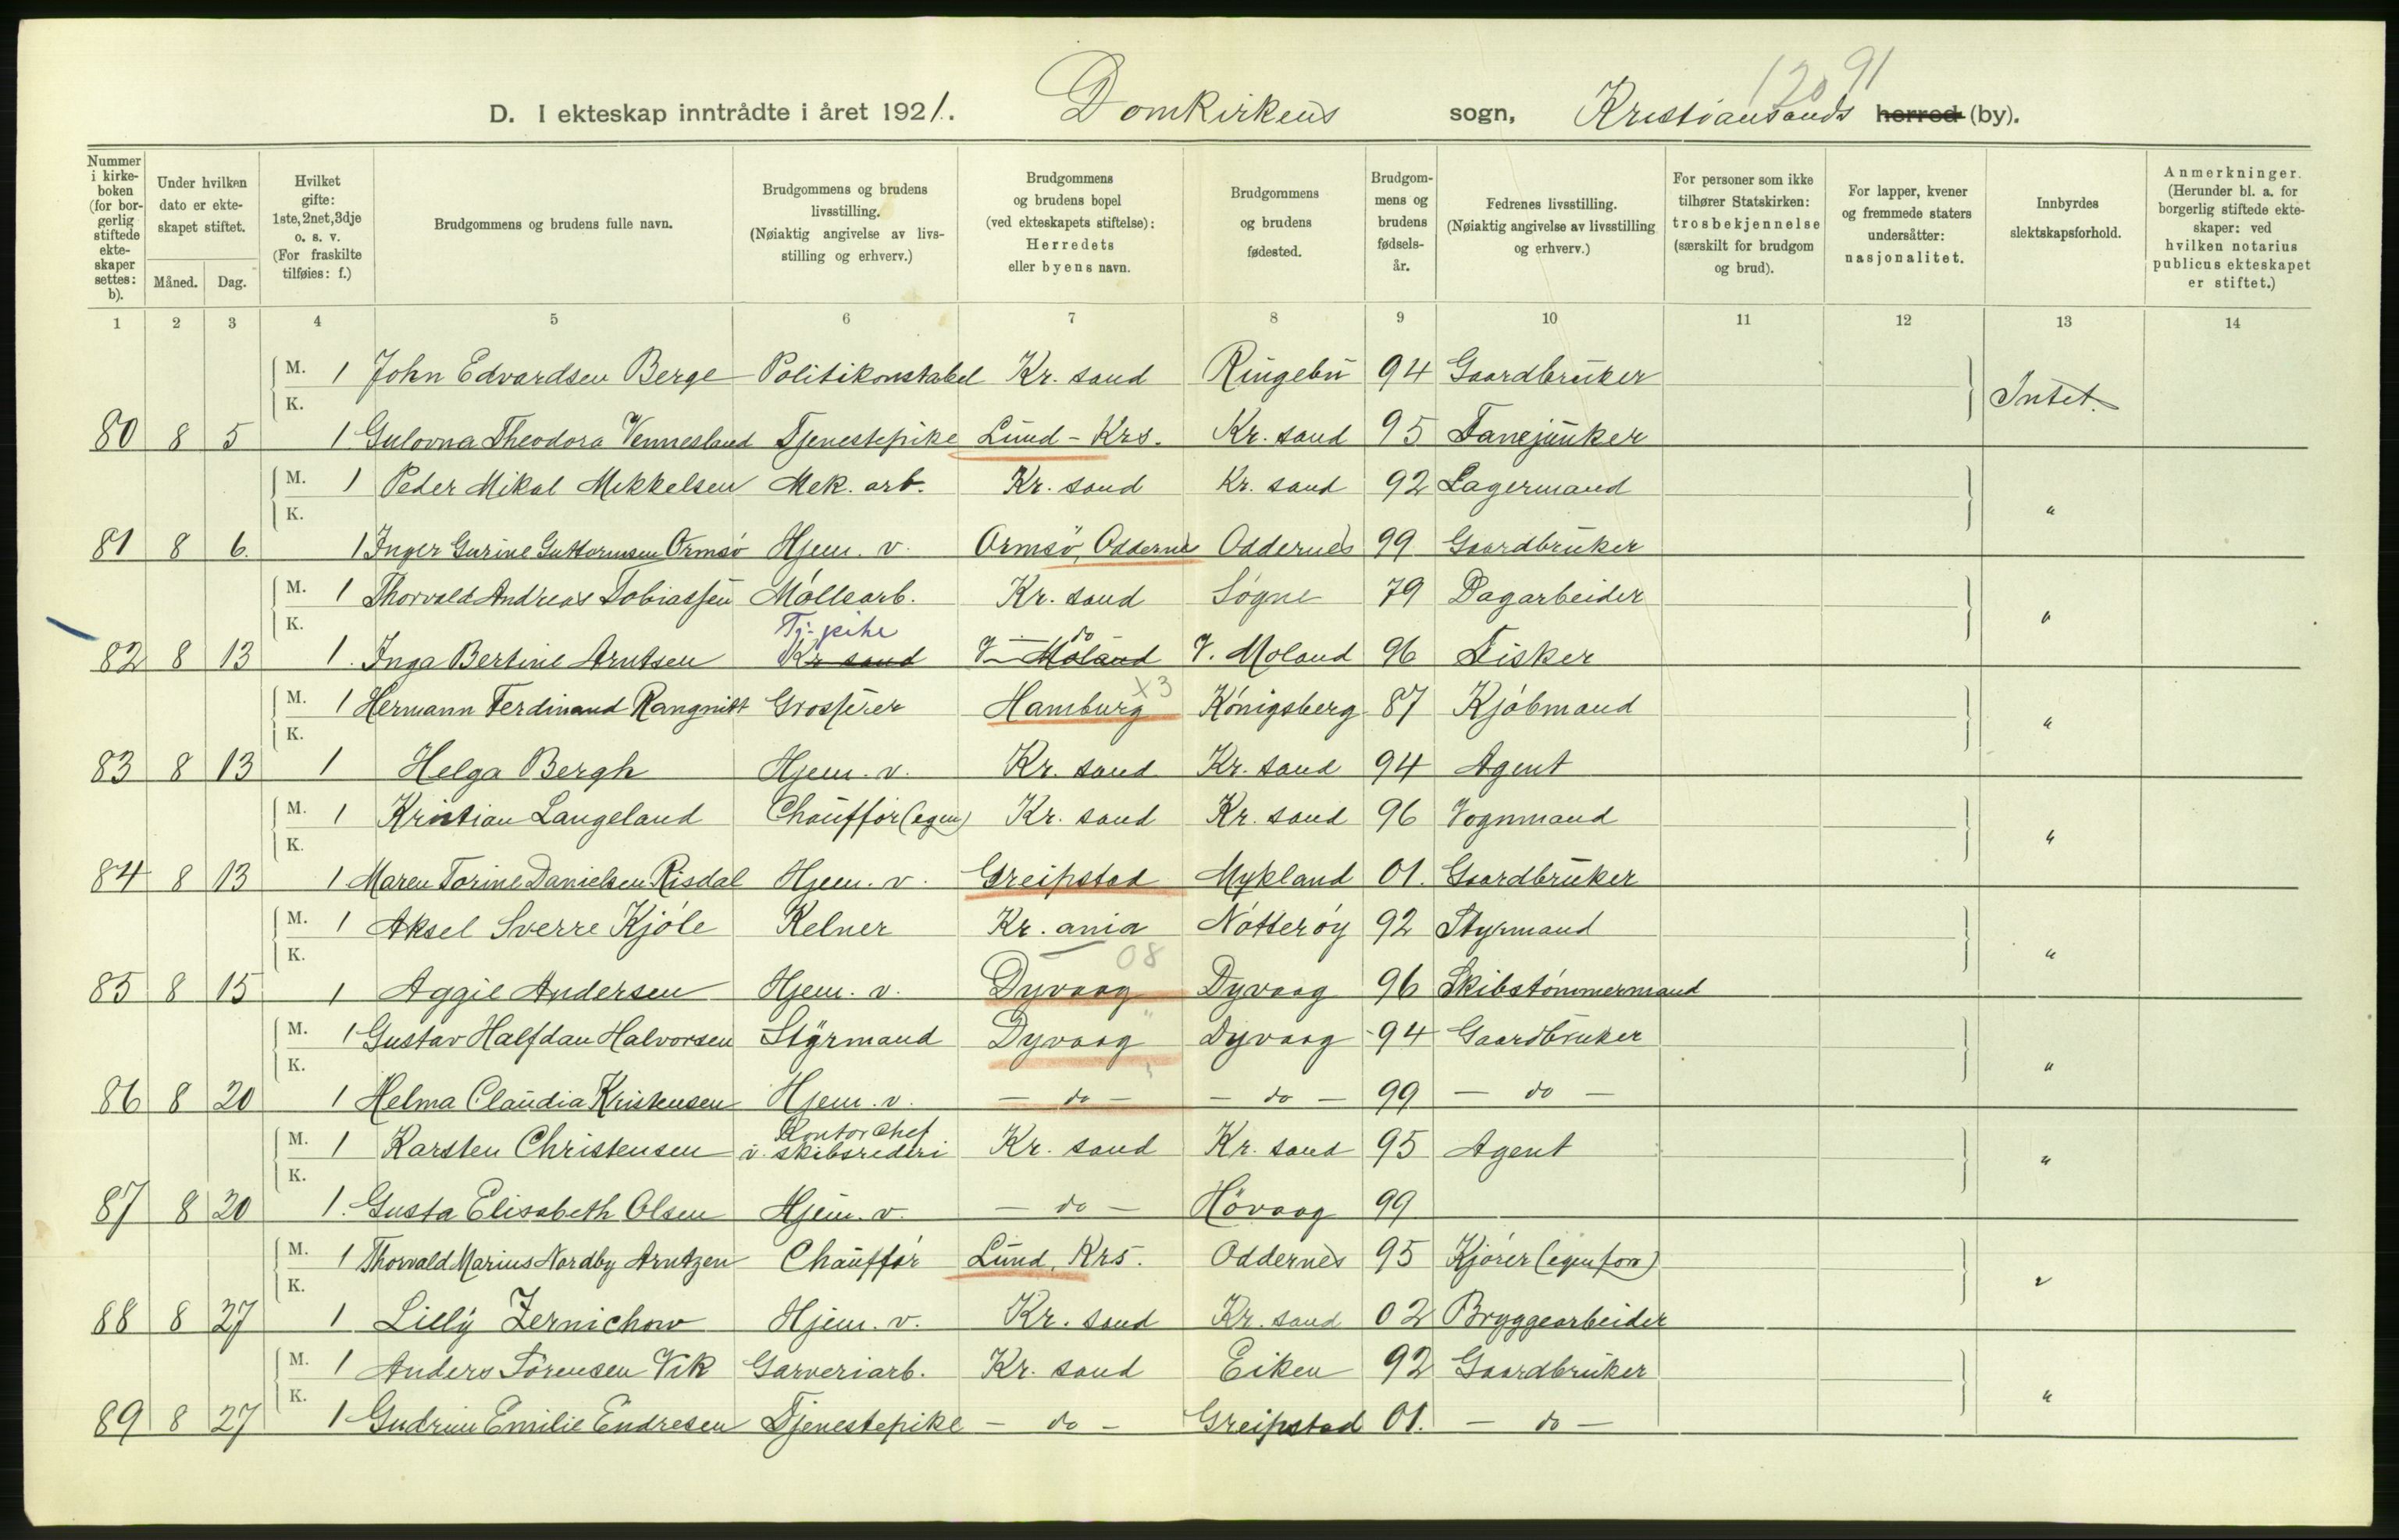 1291
D. I ekteskap inntrådte i året 1921. Domkirkens sogn, Kristiansands herred (by).
Nummer i kirke-boken (for bor-gerlig stiftede ekte-skaper settes: b).
Under hvilken dato er ekte-skapet stiftet.
Måned. Dag.
Hvilket gifte: 1ste, 2net, 3dje o. s. v. (For fraskilte tilføies: f.)
Brudgommens og brudens fulle navn.
Brudgommens og brudens livsstilling. (Nøiaktig angivelse av livs-stilling og erhverv.)
Brudgommens og brudens bopel (ved ekteskapets stiftelse): Herredets eller byens navn.
Brudgommens og brudens fødested.
Brudgom-mens og brudens fødsels-år.
Fedrenes livsstilling. (Nøiaktig angivelse av livsstilling og erhverv.)
For personer som ikke tilhører Statskirken: trosbekjennelse (særskilt for brudgom og brud).
For lapper, kvener og fremmede staters undersåtter: nasjonalitet.
Innbyrdes slektskapsforhold.
Anmerkninger. (Herunder bl. a. for borgerlig stiftede ekte-skaper: ved hvilken notarius publicus ekteskapet er stiftet.)
1 2 3 4 5 6 7 8 9 10 11 12 13 14
M. 1 John Edvardsen Berge Politikonstabel Kr. sand Ringebu 94 Gaardbruker
K. Intet.
80 8 5 1 Gulovna Theodora Vennesland Tjenestepike Lund - Krs. Kr. sand 95 Fanejunker
M. 1 Peder Mikal Mikkelsen Mek. arb. Kr. sand Kr. sand 92 Lagermand
K. "
81 8 6. 1 Inger Gurine Guttormsen Ormsø Hjem. v. Ormsø, Oddernes Oddernes 99 Gaardbruker
M. 1 Thorvald Andreas Tobiassen Møllearb. Kr. sand Søgne 79 Dagarbeider
K. Tj. pike do "
82 8 13 1. Inga Bertine Arntsen Kr sand V. Moland V. Moland 96 Fisker
M. 1 Hermann Ferdinand Rangnitt Grosserer Hamburg x3 Königsberg 87 Kjøbmand
K. "
83 8 13 1 Helga Bergh Hjem. v. Kr. sand Kr. sand 94 Agent
M. 1 Kristian Langeland Chauffør (egen) Kr. sand Kr. sand 96 Vognmand
K. "
84 8 13 1 Maren Torine Danielsen Risdal Hjem. v. Greipstad Mykland 01. Gaardbruker
M. 1 Aksel Sverre Kjøle Kelner Kr. ania Nøtterøy 92 Styrmand
K. 08 "
85 8 15 1 Aggie Andersen Hjem. v. Dyvaag Dyvaag 96 Skibstømmermand
M. 1 Gustav Halfdan Halvorsen Styrmand Dyvaag " Dyvaag 94 Gaardbruker
K. "
86 8 20 1 Helma Claudia Kristensen Hjem. v. - do - - do - 99 - do -
M. 1 Karsten Christensen Kontorchef i skibsrederi Kr. sand Kr. sand 95 Agent
K. "
87 8 20 1. Gusta Elisabeth Olsen Hjem. v. - do - Høvaag 99
M. 1 Thorvald Marius Nordby Arntzen Chauffør Lund, Krs. Oddernes 95 Kjører (egen forr)
K. "
88 8 27 1 Lilly Zernichow Hjem. v. Kr. sand Kr. sand 02 Bryggearbeider
M. 1 Anders Sørensen Vik Garveriarb. Kr. sand Eiken 92 Gaardbruker
K. "
89 8 27 1 Gudrun Emilie Endresen Tjenestepike - do - Greipstad 01. - do -